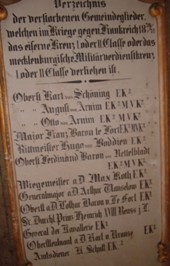 Verzeichnis
der verstorbenen Gemeindeglieder,
welchen im Kriege gegen Frankreich 18
das eiserne Kreuz I oder II Classe oder das
mecklenburgische Militärverdienstkreuz
I oder II Classe verliehen ist.
Oberst Karl von Schöning EK²
" August von Arnim EK² MVK²
" Otto von Arnim EK² MVK²
Major Franz Baron le Fort EK² MVK²
Rittmeister Hugo von Baddien EK²
Oberst Ferdinand Baron von Nettelbladt
EK² MVK²
Wiegemeister a D Max Roth EK²
Generalmajor a D Arthur EK²
Oberstl a D Lothar Baron le Fort EK²
Se Durchl Prinz Heinrich VIII Reuss
General der Kavallerie EK²
Oberstleutnant a D Karl v EK²
Amtsdiener K. Scholl EK²